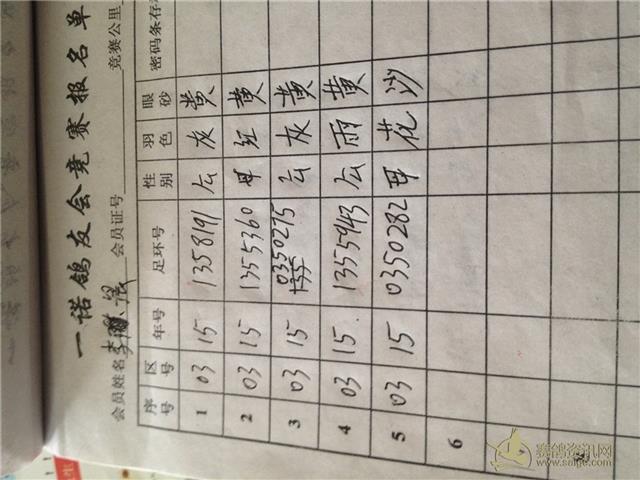 一诺鸽友会竞赛报名单
会员姓名 会员证号 竞赛公里
序号 区号 年号 足环号 性别 羽色 眼砂 密码条存
1 03 15 1358191 厷 灰 黄
2 03 15 1355360 毋 红 黄
3 03 15 0350275 厷 灰 黄
4 03 15 1355943 厷 雨 黄
5 03 15 0350282 毋 花 沙
6
赛鸽资讯网
www.saige.com